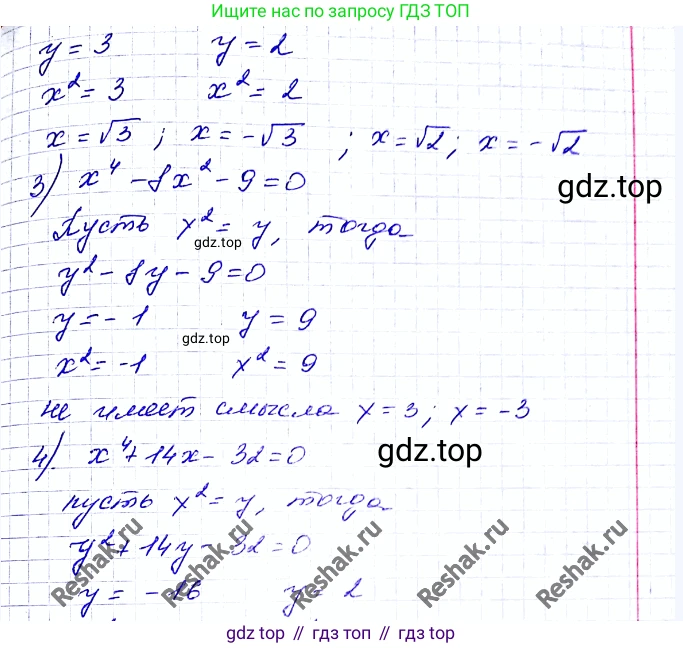 Ищите нас по запросу ГДЗ ТОП
y = 3 y = 2
x² = 3 x² = 2
x = √3 ; x = -√3 ; x = √2 ; x = -√2
3) x⁴ - 8x² - 9 = 0
gdz.top
Пусть x² = y, тогда
gdz.top
y² - 8y - 9 = 0
y = - 1 y = 9
gdz.top
x² = -1 x² = 9
не имеет смысла x = 3 ; x = -3
4) x⁴ + 14x - 32 = 0
gdz.top
пусть x² = y, тогда
y² + 14y - 32 = 0
Reshak.ru Reshak.ru Reshak.ru Reshak.ru Reshak.ru
y = - 16 y = 2
gdz.top // гдз топ // gdz.top